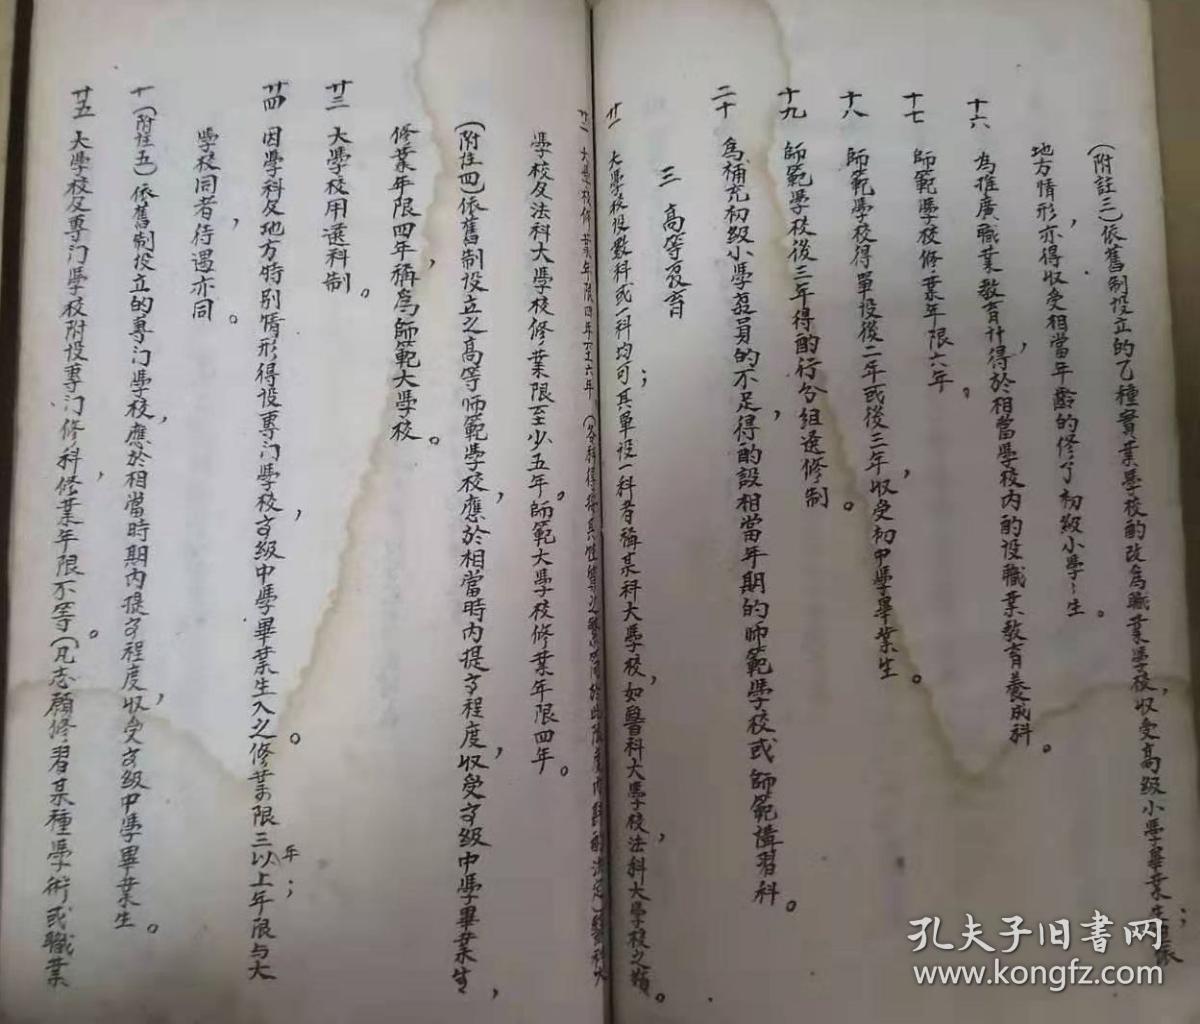 (附註三)依舊制設立的乙種實業學校酌改為職業學校,收受高級小學畢業生;
地方情形,亦得收受相當年齡的修了初級小學ミ生。
十六 為推廣職業教育計,得於相當學校内酌設職業教育養成科。
十七 師範學校修業年限六年。
十八 師範學校得單設後二年或後三年,收受初中學畢業生。
十九 師範學校後三年得酌行分組選修制。
二十 為補充初級小學教員的不足,得酌設相當年期的師範學校或師範講習科。
三 高等教育
廿一 大學校設數科或一科均可;其單設一科者稱某科大學校,如醫科大學校,法科大學校之類。
廿二 大學校修業年限四年至六年(各科得按其性質之繁簡於此限度内斟酌決定)醫科大
學校及法科大學校修業限至少五年。師範大學校修業年限四年。
(附註四)依舊制設立之高等師範學校,應於相當時内提高程度,收受高級中學畢業生,
修業年限四年,稱為師範大學校。
廿三 大學校用選科制。
廿四 因學科及地方特別情形,得設專门學校,高級中學畢業生入之。修業限三年以上;年限与大
學校同者,待遇亦同。
十一(附註五)依舊制設立的專门學校,應於相當時期内提高程度,收受高級中學畢業生。
廿五 大學校及專门學校附設專门修科,修業年限不等。(凡志願修習某種學術或職業
孔夫子旧书网
www.kongfz.com